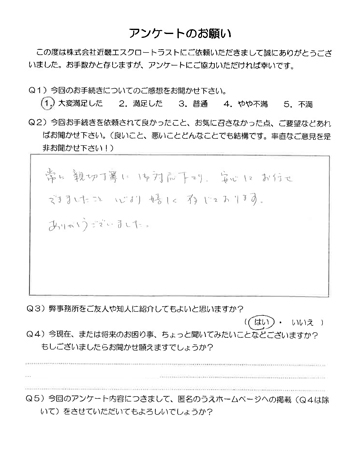 アンケートのお願い
この度は株式会社近畿エスクロートラストにご依頼いただきまして誠にありがとうござ
いました。お手数かと存じますが、アンケートにご協力いただければ幸いです。
Q1）今回のお手続きについてのご感想をお聞かせ下さい。
1．大変満足した 2．満足した 3．普通 4．やや不満 5．不満
Q2）今回お手続きを依頼されて良かったこと、お気に召さなかった点、ご要望などあれ
ばお聞かせ下さい。（良いこと、悪いことどんなことでも結構です。率直なご意見を是
非お聞かせ下さい！）
常に親切丁寧に御対応下さり、安心してお任せ
できましたこと 心より嬉しく存じております。
ありがとうございました。
Q3）弊事務所をご友人や知人に紹介してもよいと思いますか？
（はい ・ いいえ ）
Q4）今現在、または将来のお困り事、ちょっと聞いてみたいことなどございますか？
もしございましたらお聞かせ願えますでしょうか？
Q5）今回のアンケート内容につきまして、匿名のうえホームページへの掲載（Q4は除
いて）をさせていただいてもよろしいでしょうか？